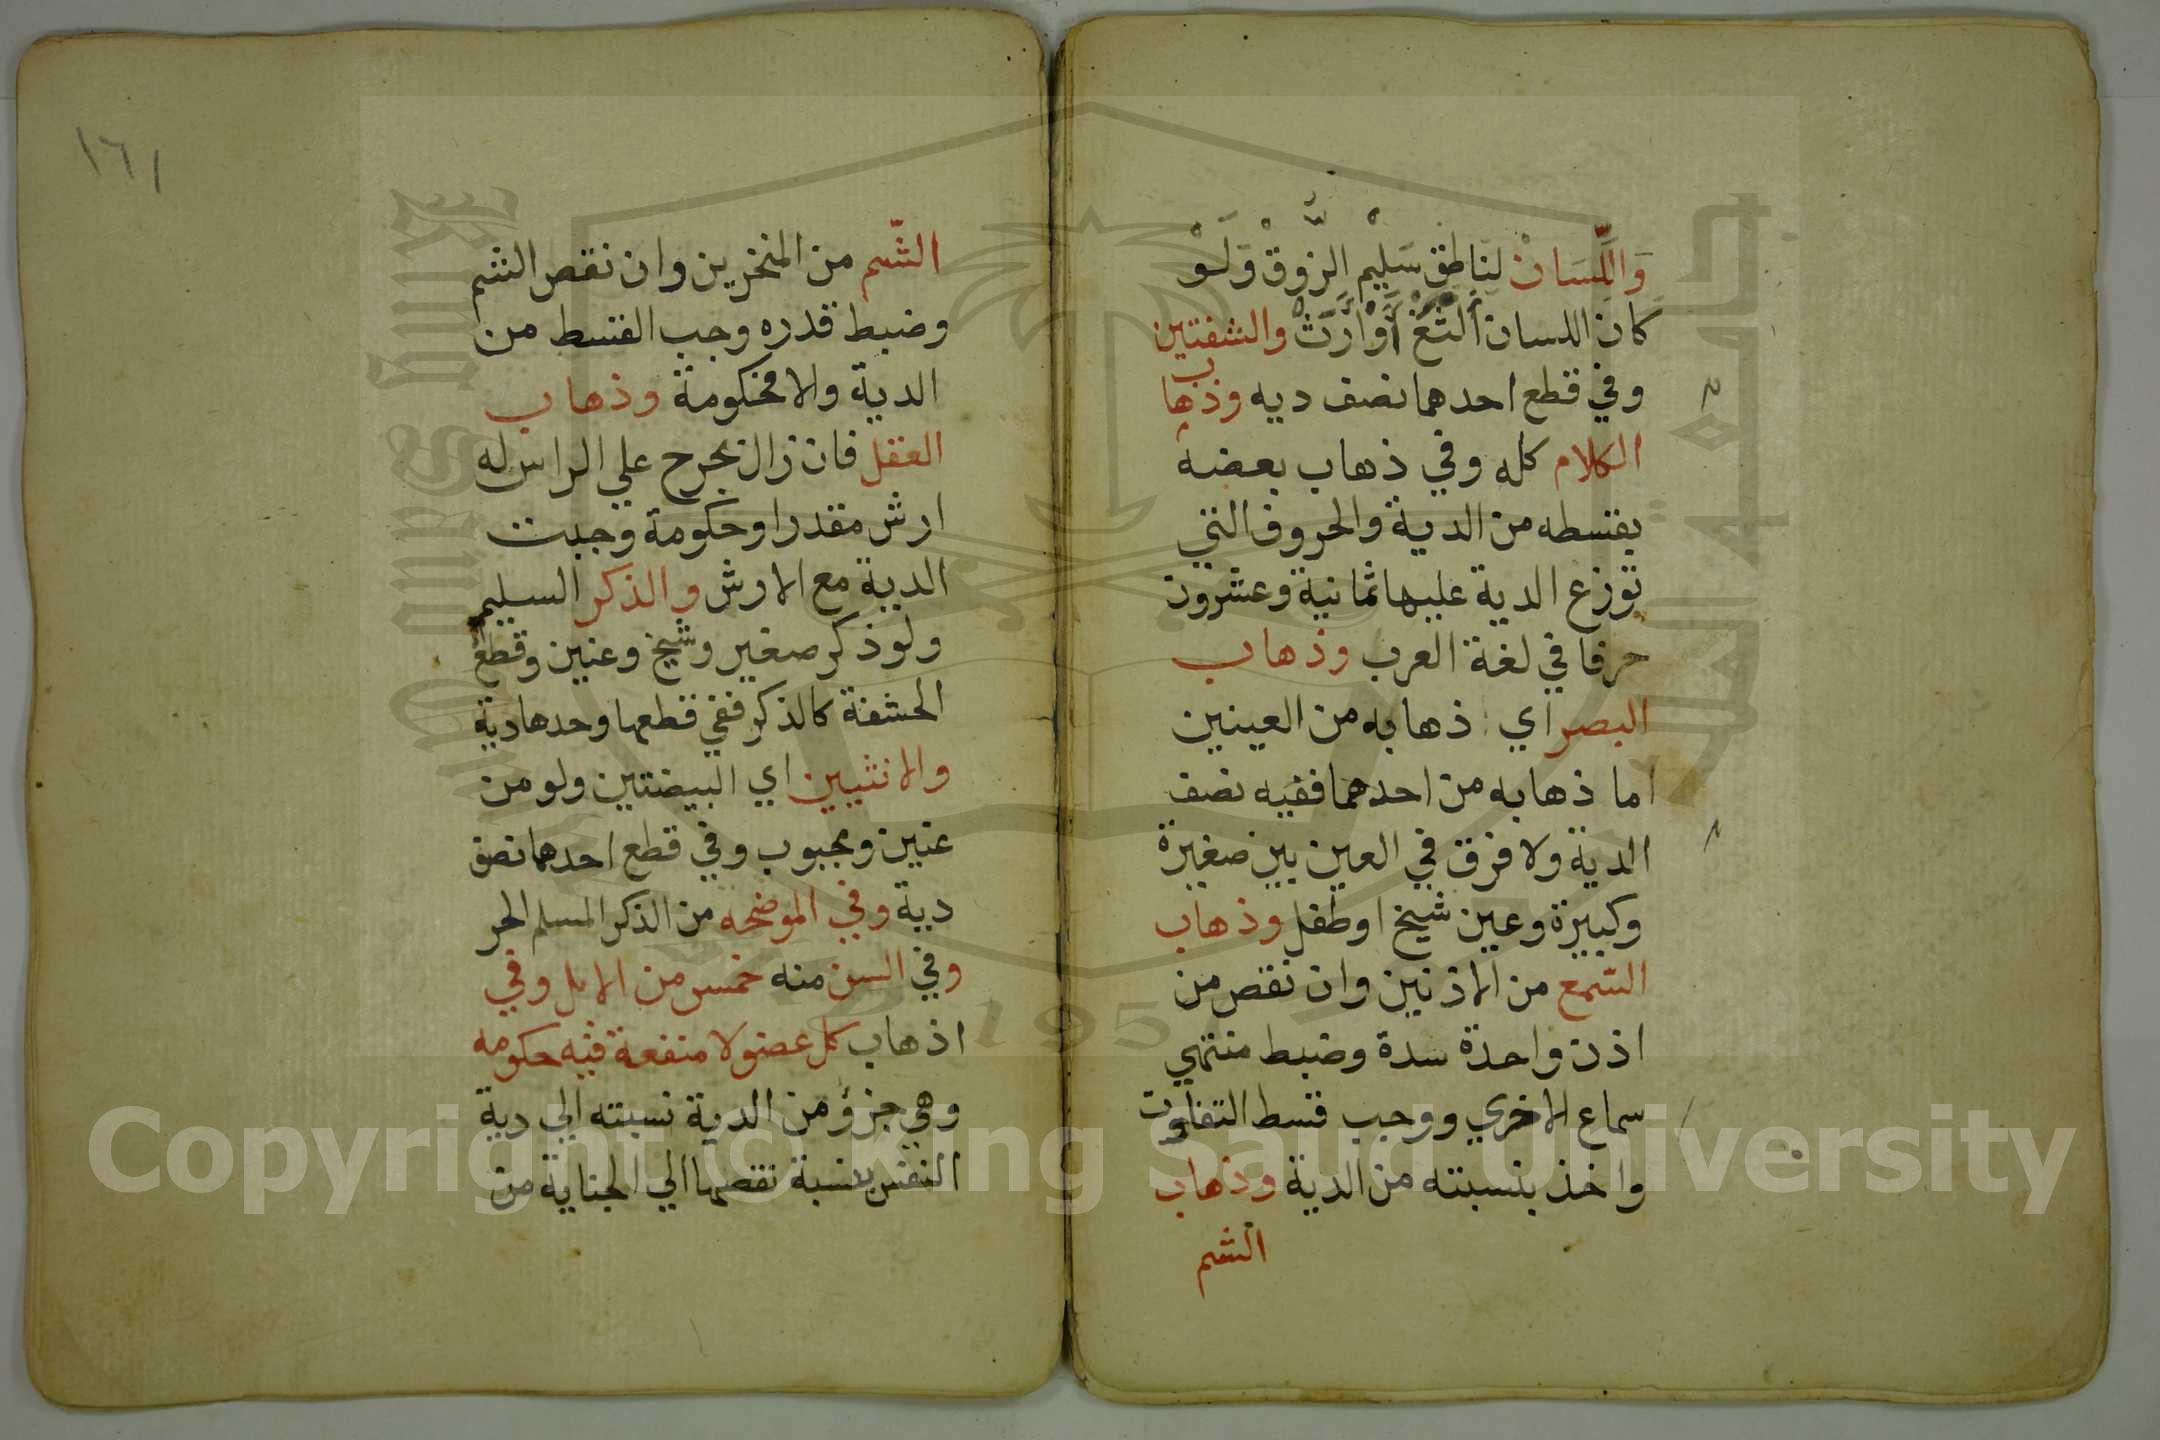 وَاللِّسَانْ لِنَاطِقٍ سَلِيْمِ الزَّوقْ وَلَوْ
كَانَ اللسان اَلْثَغْ أَوْ اَرَتْ والشفتين
وفي قطع احدهما نصف ديه وذهاب
الكلام كله وفي ذهاب بعضه
بقسطه من الدية والحروف التي
توزع الدية عليها ثمانية وعشرون
حرفا في لغة العرب وذهاب
البصر اي ذهابه من العينين
اما ذهابه من احدهما ففيه نصف
الدية ولا فرق في العين بين صغيرة
وكبيرة وعين شيخ او طفل وذهاب
السّمع من الاذنين وان نقص من
اذن واحدة سدة وضبط منتهي
سماع الاخري ووجب قسط التفاوت
واخذ بنسبته من الدية وذهاب
الشم
١٦١
الشّم من المنخرين وان نقص الشم
وضبط قدره وجب القسط من
الدية والا فحكومة وذهاب
العقل فان زال بجرح علي الراس له
ارش مقدر او حكومة وجبت
الدية مع الارش والذكر السليم
ولو ذكر صغير وشيخ وعنين وقطع
الحشفة كالذكر ففي قطعها وحدها دية
والانثيين اي البيضتين ولو من
عنين ومجبوب وفي قطع احدهما نصف
دية وفي الموضحه من الذكر المسلم الحر
وفي السن منه خمس من الابل وفي
اذهاب كل عضو لا منفعة فيه حكومه
وهي جزؤ من الدية نسبته الي دية
النفس بنسبة نقصها الي الجناية من
Copyright © King Saud University
1957